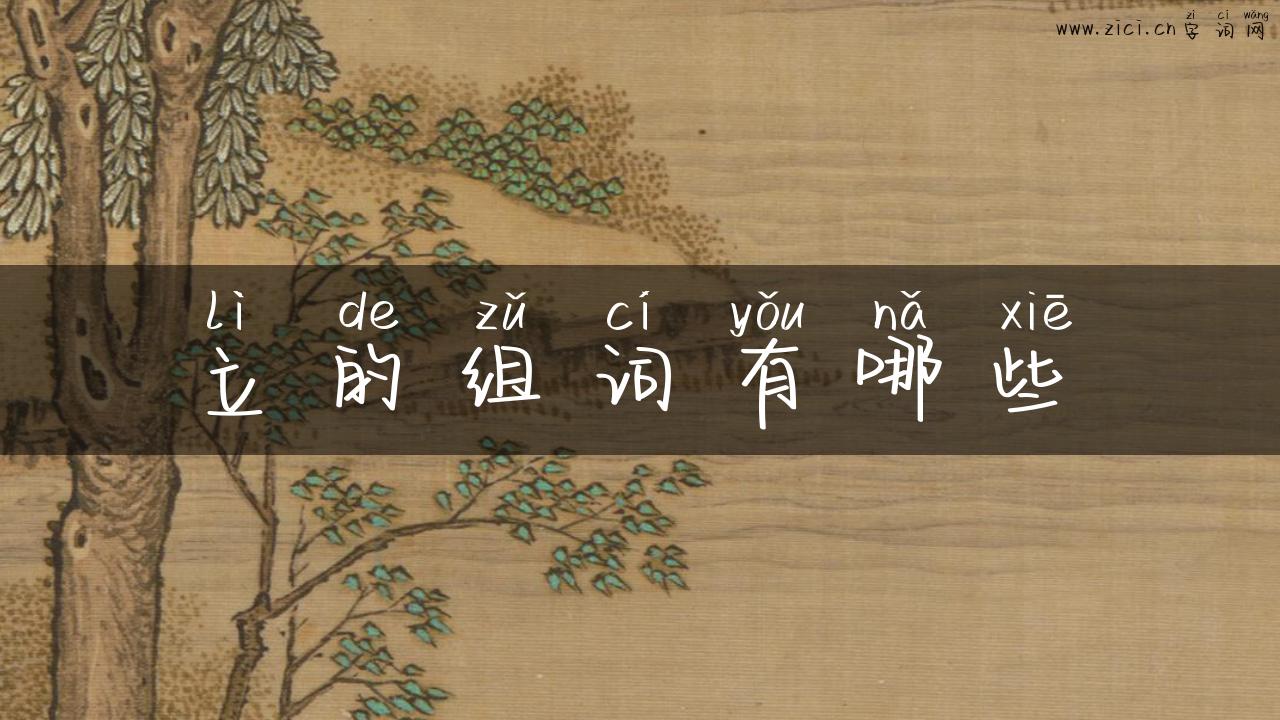 zì cí wǎng
www.zici.cn 字词网
lì de zǔ cí yǒu nǎ xiē
立的组词有哪些